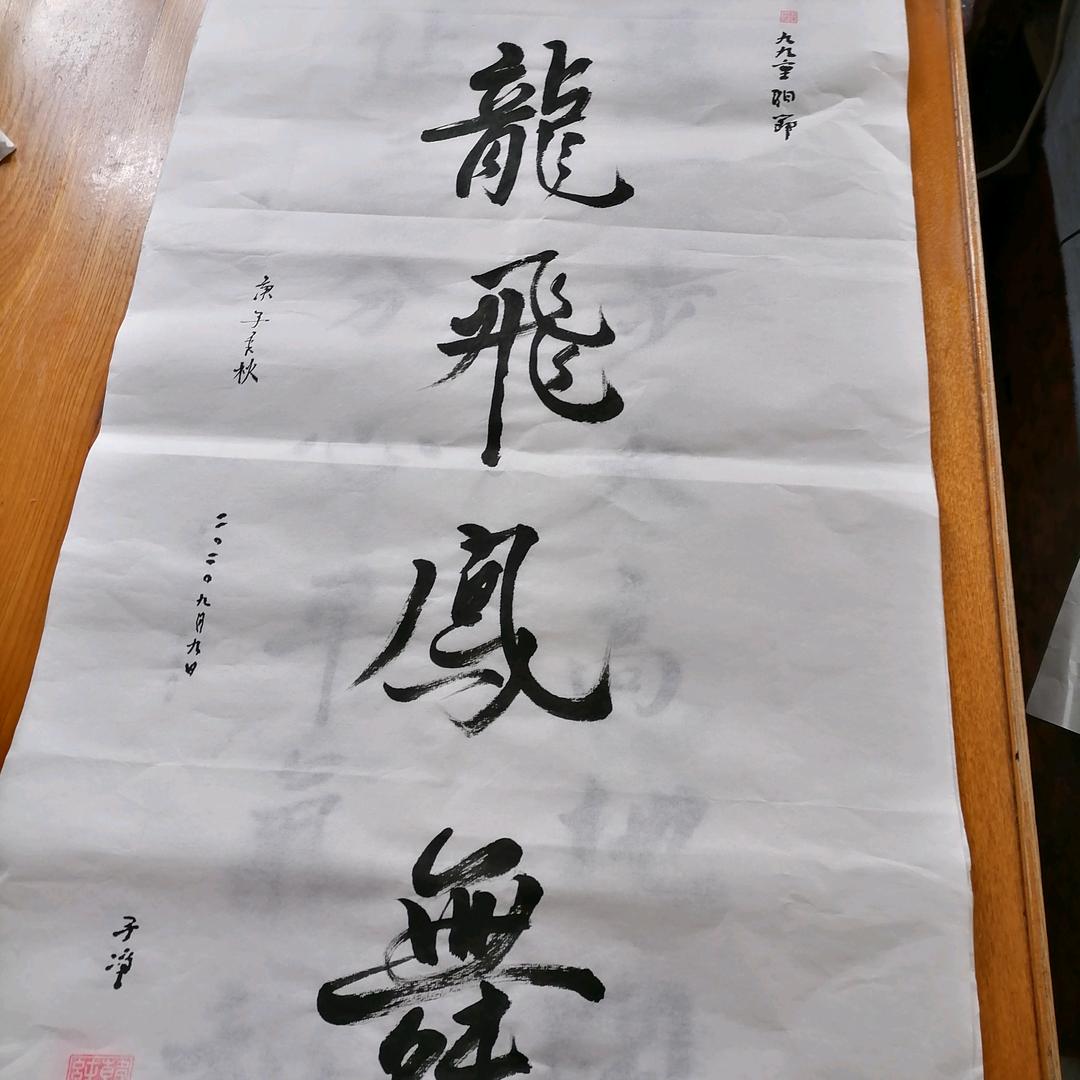 九九重阳節
龍飛鳳舞
庚子春秋
二〇二〇九月九日
子淨